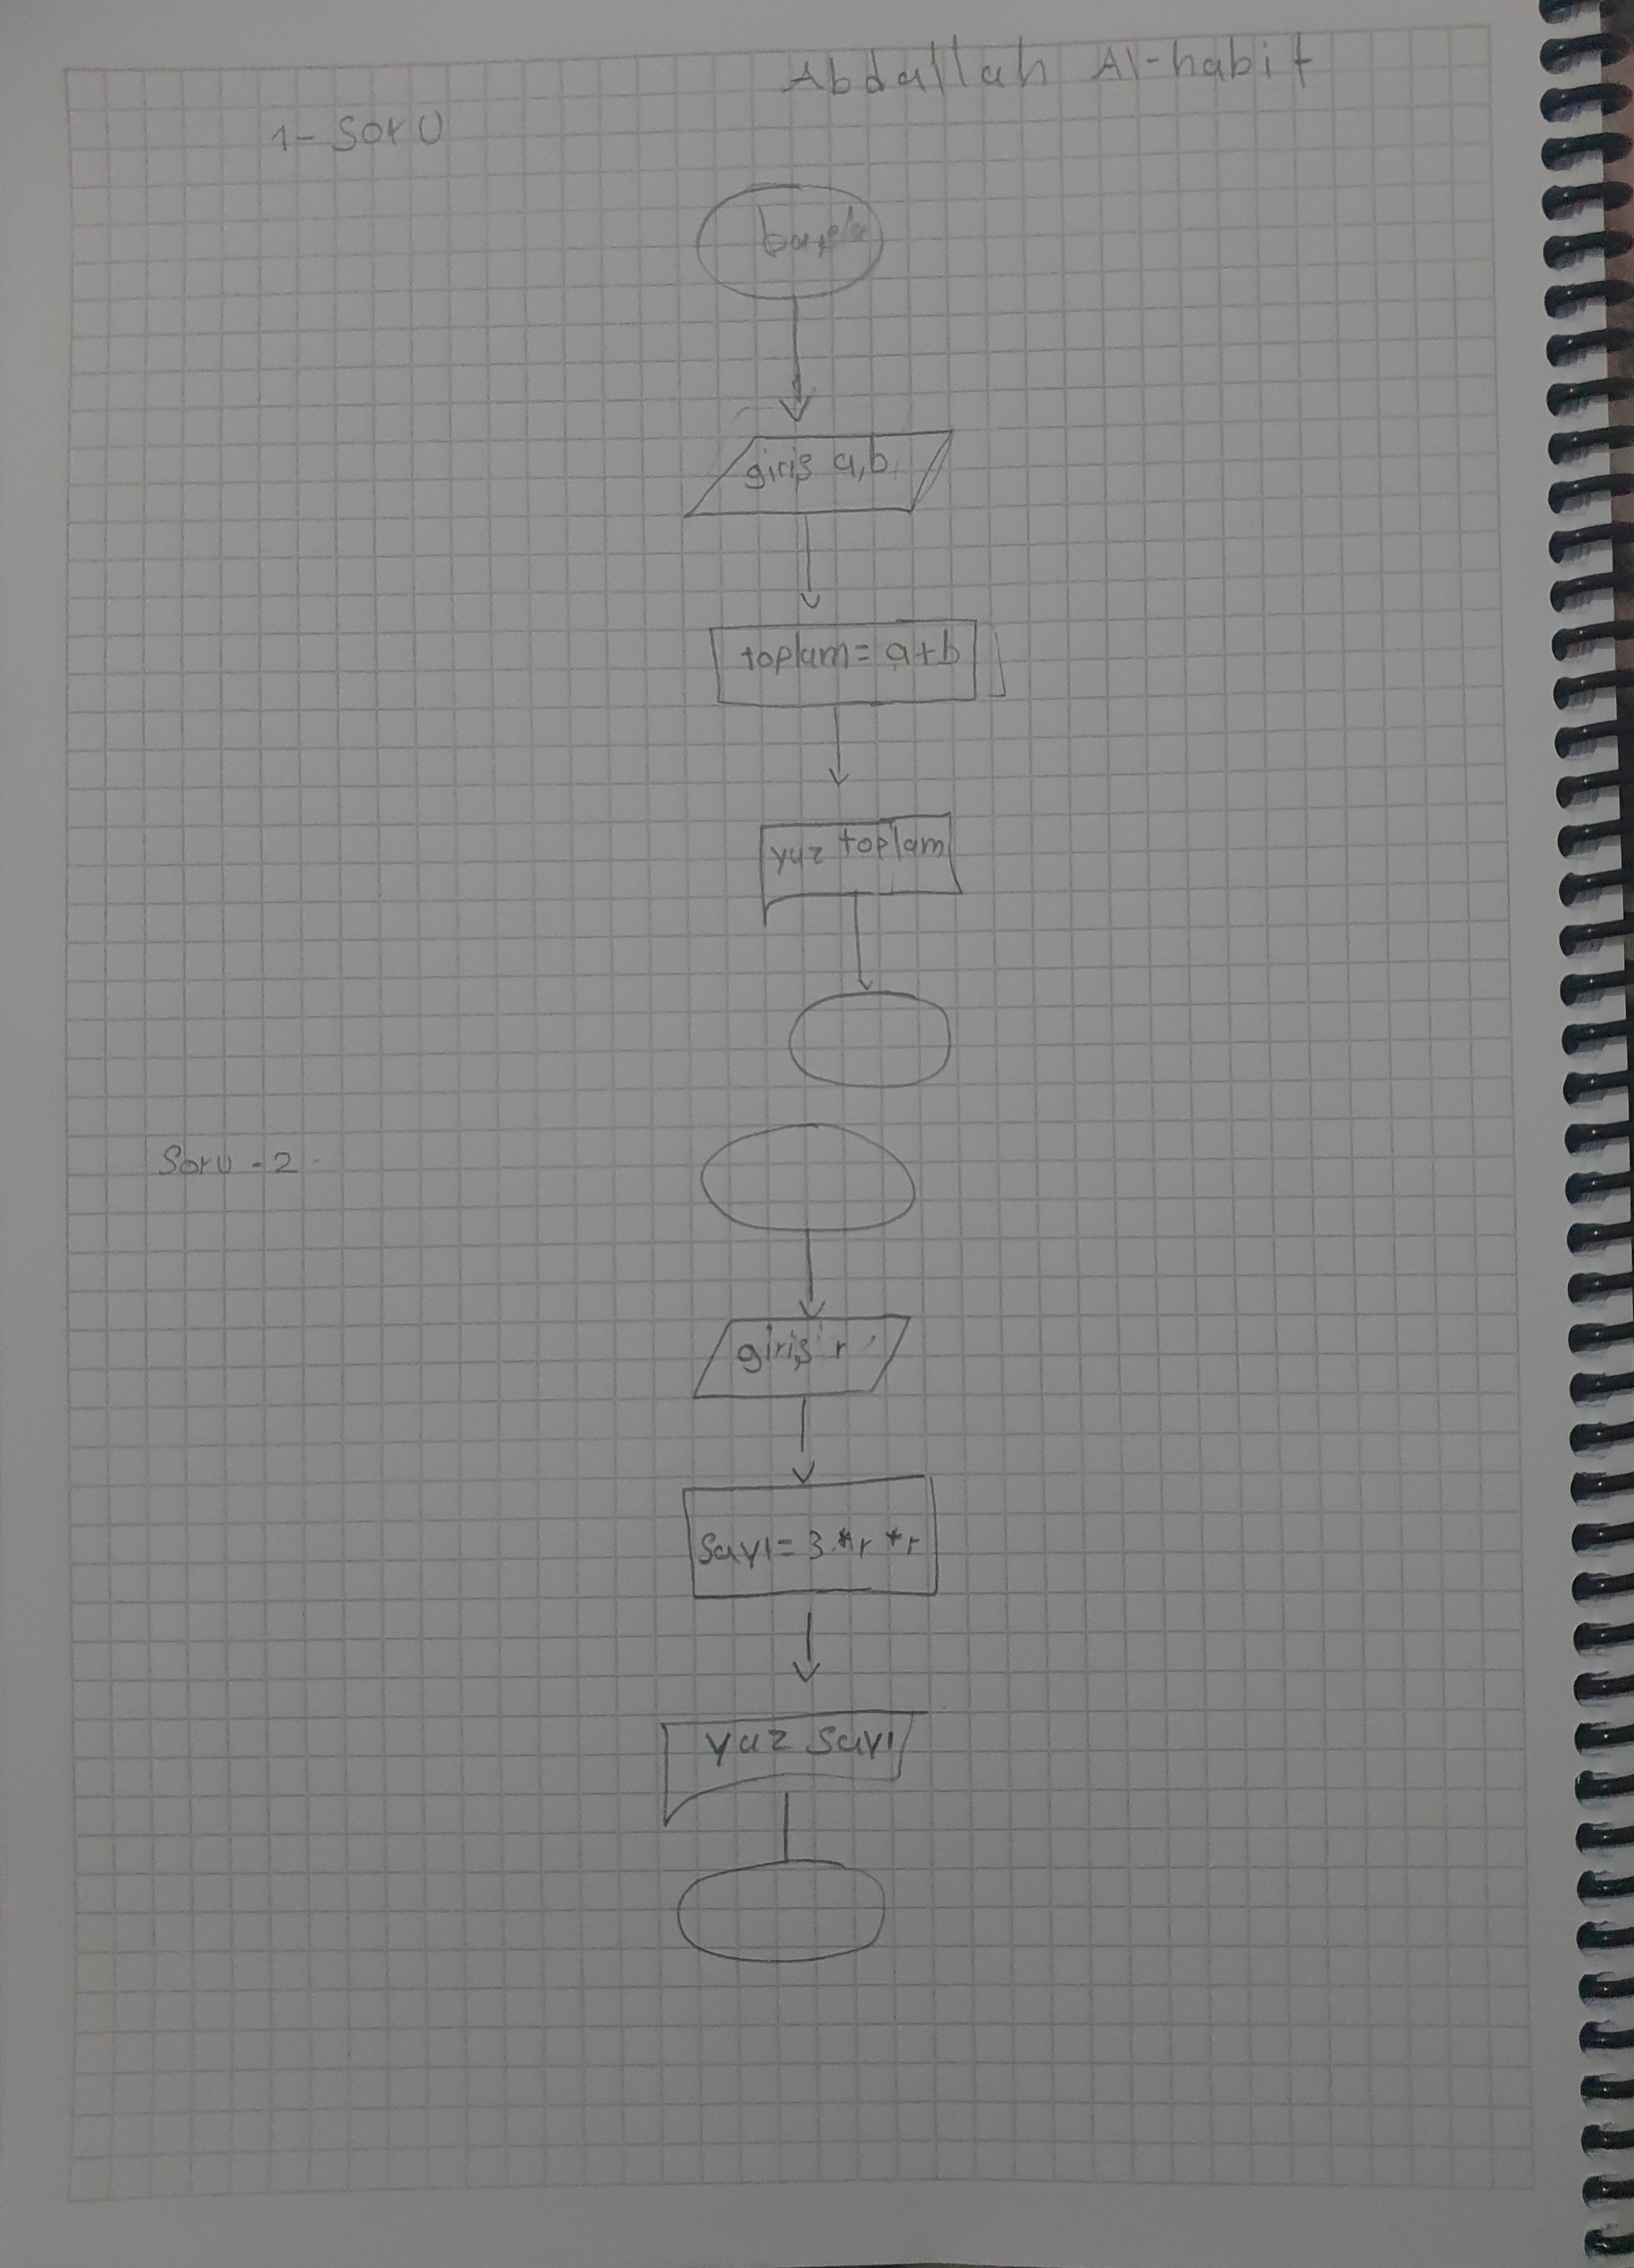 Abdallah Al-habit
1- Soru
başla
giriş a,b
toplam= a+b
yaz toplam
Soru - 2
giriş r
Sayı= 3.*r *r
yaz Sayı